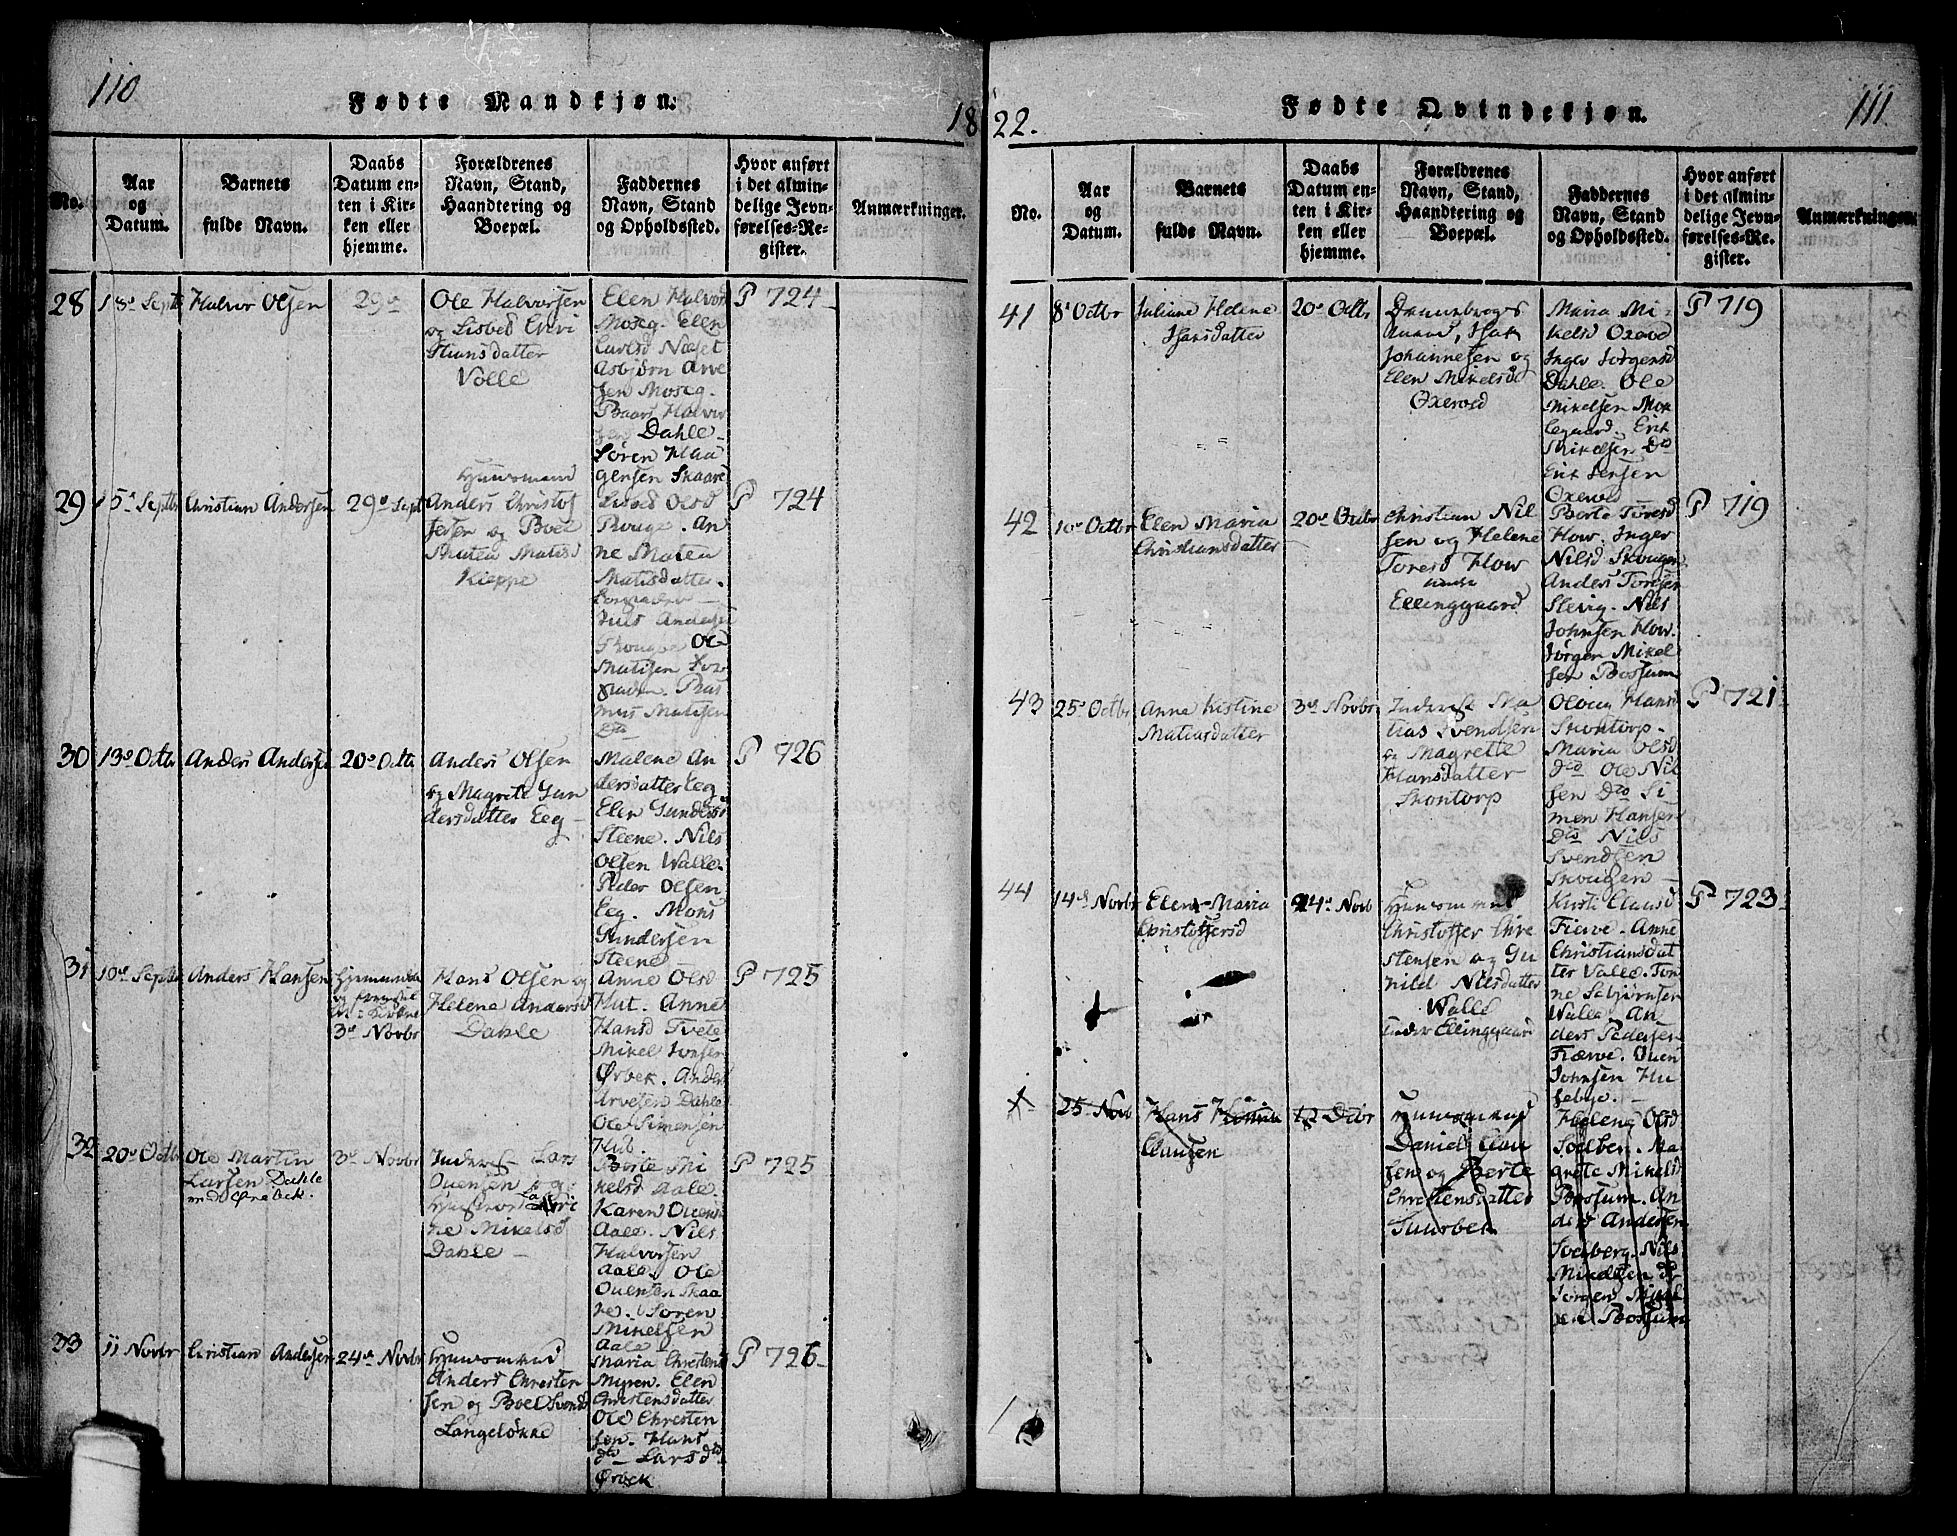 110
Fødte Mandkjøn.
18
No.
Aar
og
Datum.
Barnets
fulde Navn.
Daabs
Datum en-
ten i Kir-
ken eller
hjemme.
Forældrenes
Navn, Stand,
Haandtering og
Boepæl.
Faddernes
Navn, Stand
og Opholdssted.
Hvor anført
i det almin-
delige Jevn-
førelses-Re-
gister.
Anmærkninger.
28
Halvor Olsen
29
Ole Halvorsen
og Lisbed Chri
stiansdatter
Volle
Elen Halvors
Moseg. Elen
Carlsd Næset
Asbjørn Arve
sen Moseg.
Baars Halvor
sen Dahle
Søren Haa
gensen Skaare
P 724
29
15 Septbr
Christian Andersen
29 Sept
Huusmand
Anders Christof
fersen og Boel
Maten Matisd
Kieppe
Lisbed Olsd
An
ne Maten
Matisdatter
Juls Anders
Ole
Matisen
Ras
mus Matisen
P 724
30
13 Octbr
Anders Andersen
20 Octbr
Anders Olsen
og Magrete Gun
dersdatter Eeg
Malene An
dersdatter Eeg
Elen Gundersd
Steene. Nils
Olsen Walle
Peder Olsen
Eeg. Mons
Gundersen
Steene
P 726
31
10 Septbr
Anders Hansen
Hjemmedøbt
3 Novbr
Hans Olsen og
Helene Andersd
Dahle
Anne Olsd
Hut. Anne
Hansd Tvete
Mikel Jonsen
Ørbek. Anders
Arvesen Dahle
Ole Simensen
Hub.
P 725
32
20 Octbr
Ole Martin
Larsen Dahle
med Ørebek.
3 Novbr
Inderst Lars
Ouensen og
ne Mikelsd
Dahle
Berte Mi
kelsd Aale.
Karen Ouens
Aale. Nils
Halvorsen
Aale. Ole
Ouensen Skaa
re. Søren
Mikelsen
Aale
P 725
33
11 Novbr
Christian Andersen
24 Novbr
Huusmand
Anders Christen
sen og Boel Svends
Langeløkke
Maria Christens
Myren. Elen
Christensdatter
Ole Christen
sen. Hans
dto Lars dto
Ørbek
P 726
22.
Fødte Qvindekjøn.
111
No.
Aar
og
Datum.
Barnets
fulde Navn.
Daabs
Datum en-
ten i Kir-
ken eller
hjemme.
Forældrenes
Navn, Stand,
Haandtering og
Boepæl.
Faddernes
Navn, Stand
og Opholdssted.
Hvor anført
i det almin-
delige Jevn-
førelses-Re-
gister.
Anmærkninger.
41
8 Octbr
Juliane Helene
Isaksdatter
20 Octbr
Dannebrogs
mand, Isak
Johannesen og
Elen Mikelsd
Oxevold
Maria Mi
kelsd Oxevold
Inger Jørgensd
Dahle. Ole
Mikelsen Mok
legaard. Erik
Mikelsen Do
Erik Jensen
Oxevold
P 719
42
10 Octbr
Elen Maria
Christiansdatter
20 Octbr
Christian Nil
sen og Helene
Toresd How
under
Ellinggaard
Berte Toresd
How. Inger
Nilsd Skougen
Anders Toresen
Slevig. Nils
Johnsen How.
Jørgen Mikel
sen Bossum
P 719
43
25 Octbr
Anne Kistine
Matiasdatter
3 Novbr
Inderst Ma
tias Svendsen
og Magrette
Hansdatter
Skontorp
Hansd
Skontorp.
Maria Olsd
dto Ole Nil
sen Dto Si
men Hansen
Dto Nils
Svendsen
Skougen
P 721
44
14 Novbr
Elen Maria
Christoffersd
24 Novb
Huusmand
Christoffer Chri
stensen og Gu
nild Nilsdatter
Walle
under Ellinggaard
Kirsti Clausd
Fierve. Anne
Christiansdat
ter Valle. Ton
ne Asbjørnsen
Walle An
ders Pedersen
Fierve. Ouen
Johnsen Hu
sebye.
P 723
25 Novb
Hans
Clausen
12 Decbr
Huusmand
Daniel Clau
sen og Berte
Christensdatter
Tuurbek
Helene Olsd
Soelberg. Ma
grete Mikelsd
Bossum. An
ders Andersen
Soelberg. Nils
Mikelsen do
Jørgen Mikel
sen Bossum